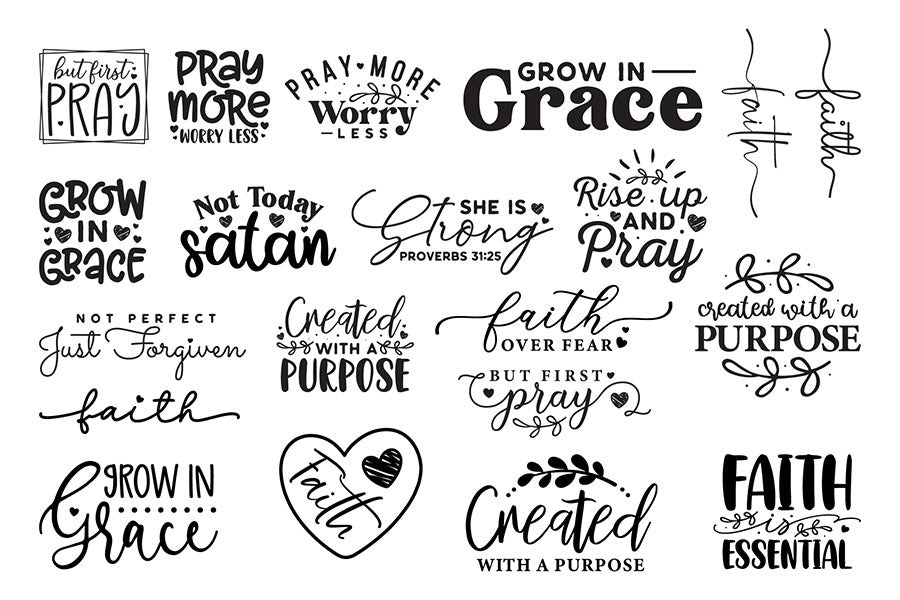 but first
PRAY
PRAY
MORE
WORRY LESS
PRAY MORE
Worry
LESS
GROW IN
Grace
faith
faith
GROW
IN
GRACE
Not Today
satan
SHE IS
Strong
PROVERBS 31:25
Rise up
AND
Pray
NOT PERFECT
Just Forgiven
Created
WITH A
PURPOSE
faith
OVER FEAR
created with a
PURPOSE
faith
BUT FIRST
pray
GROW IN
Grace
Faith
Created
WITH A PURPOSE
FAITH
is
ESSENTIAL